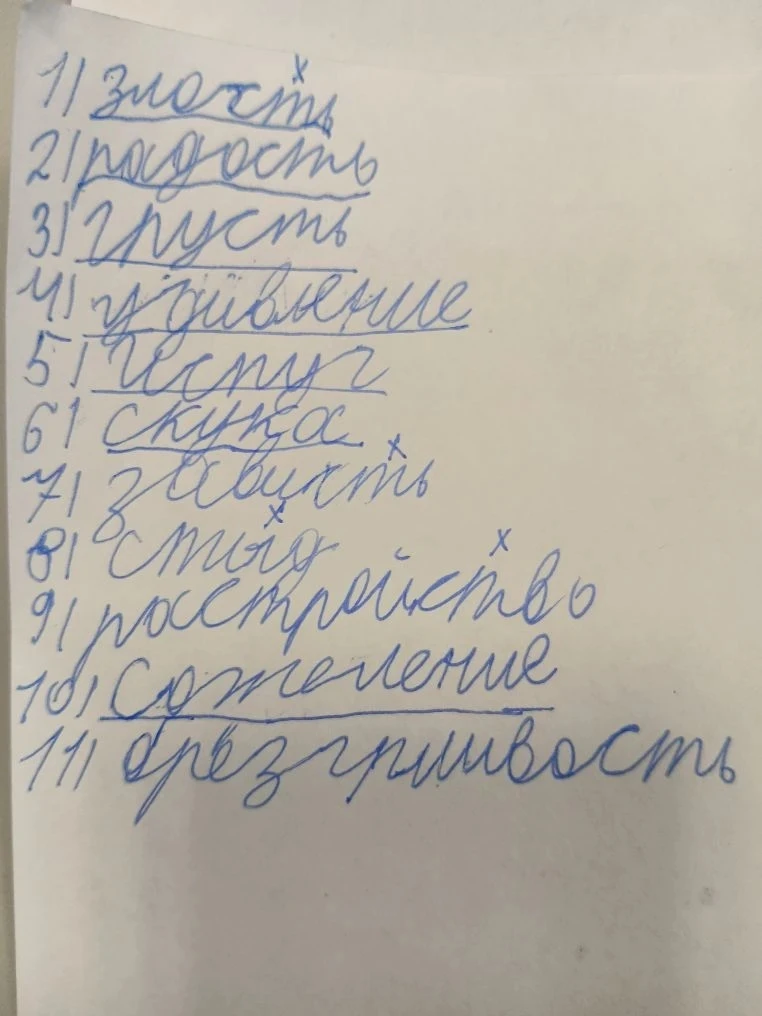 1) злость
2) радость
3) грусть
4) удивление
5) Испуг
6) скука
7) зависть
8) стыд
9) расстройство
10) Сожеление
11) брезгрливость